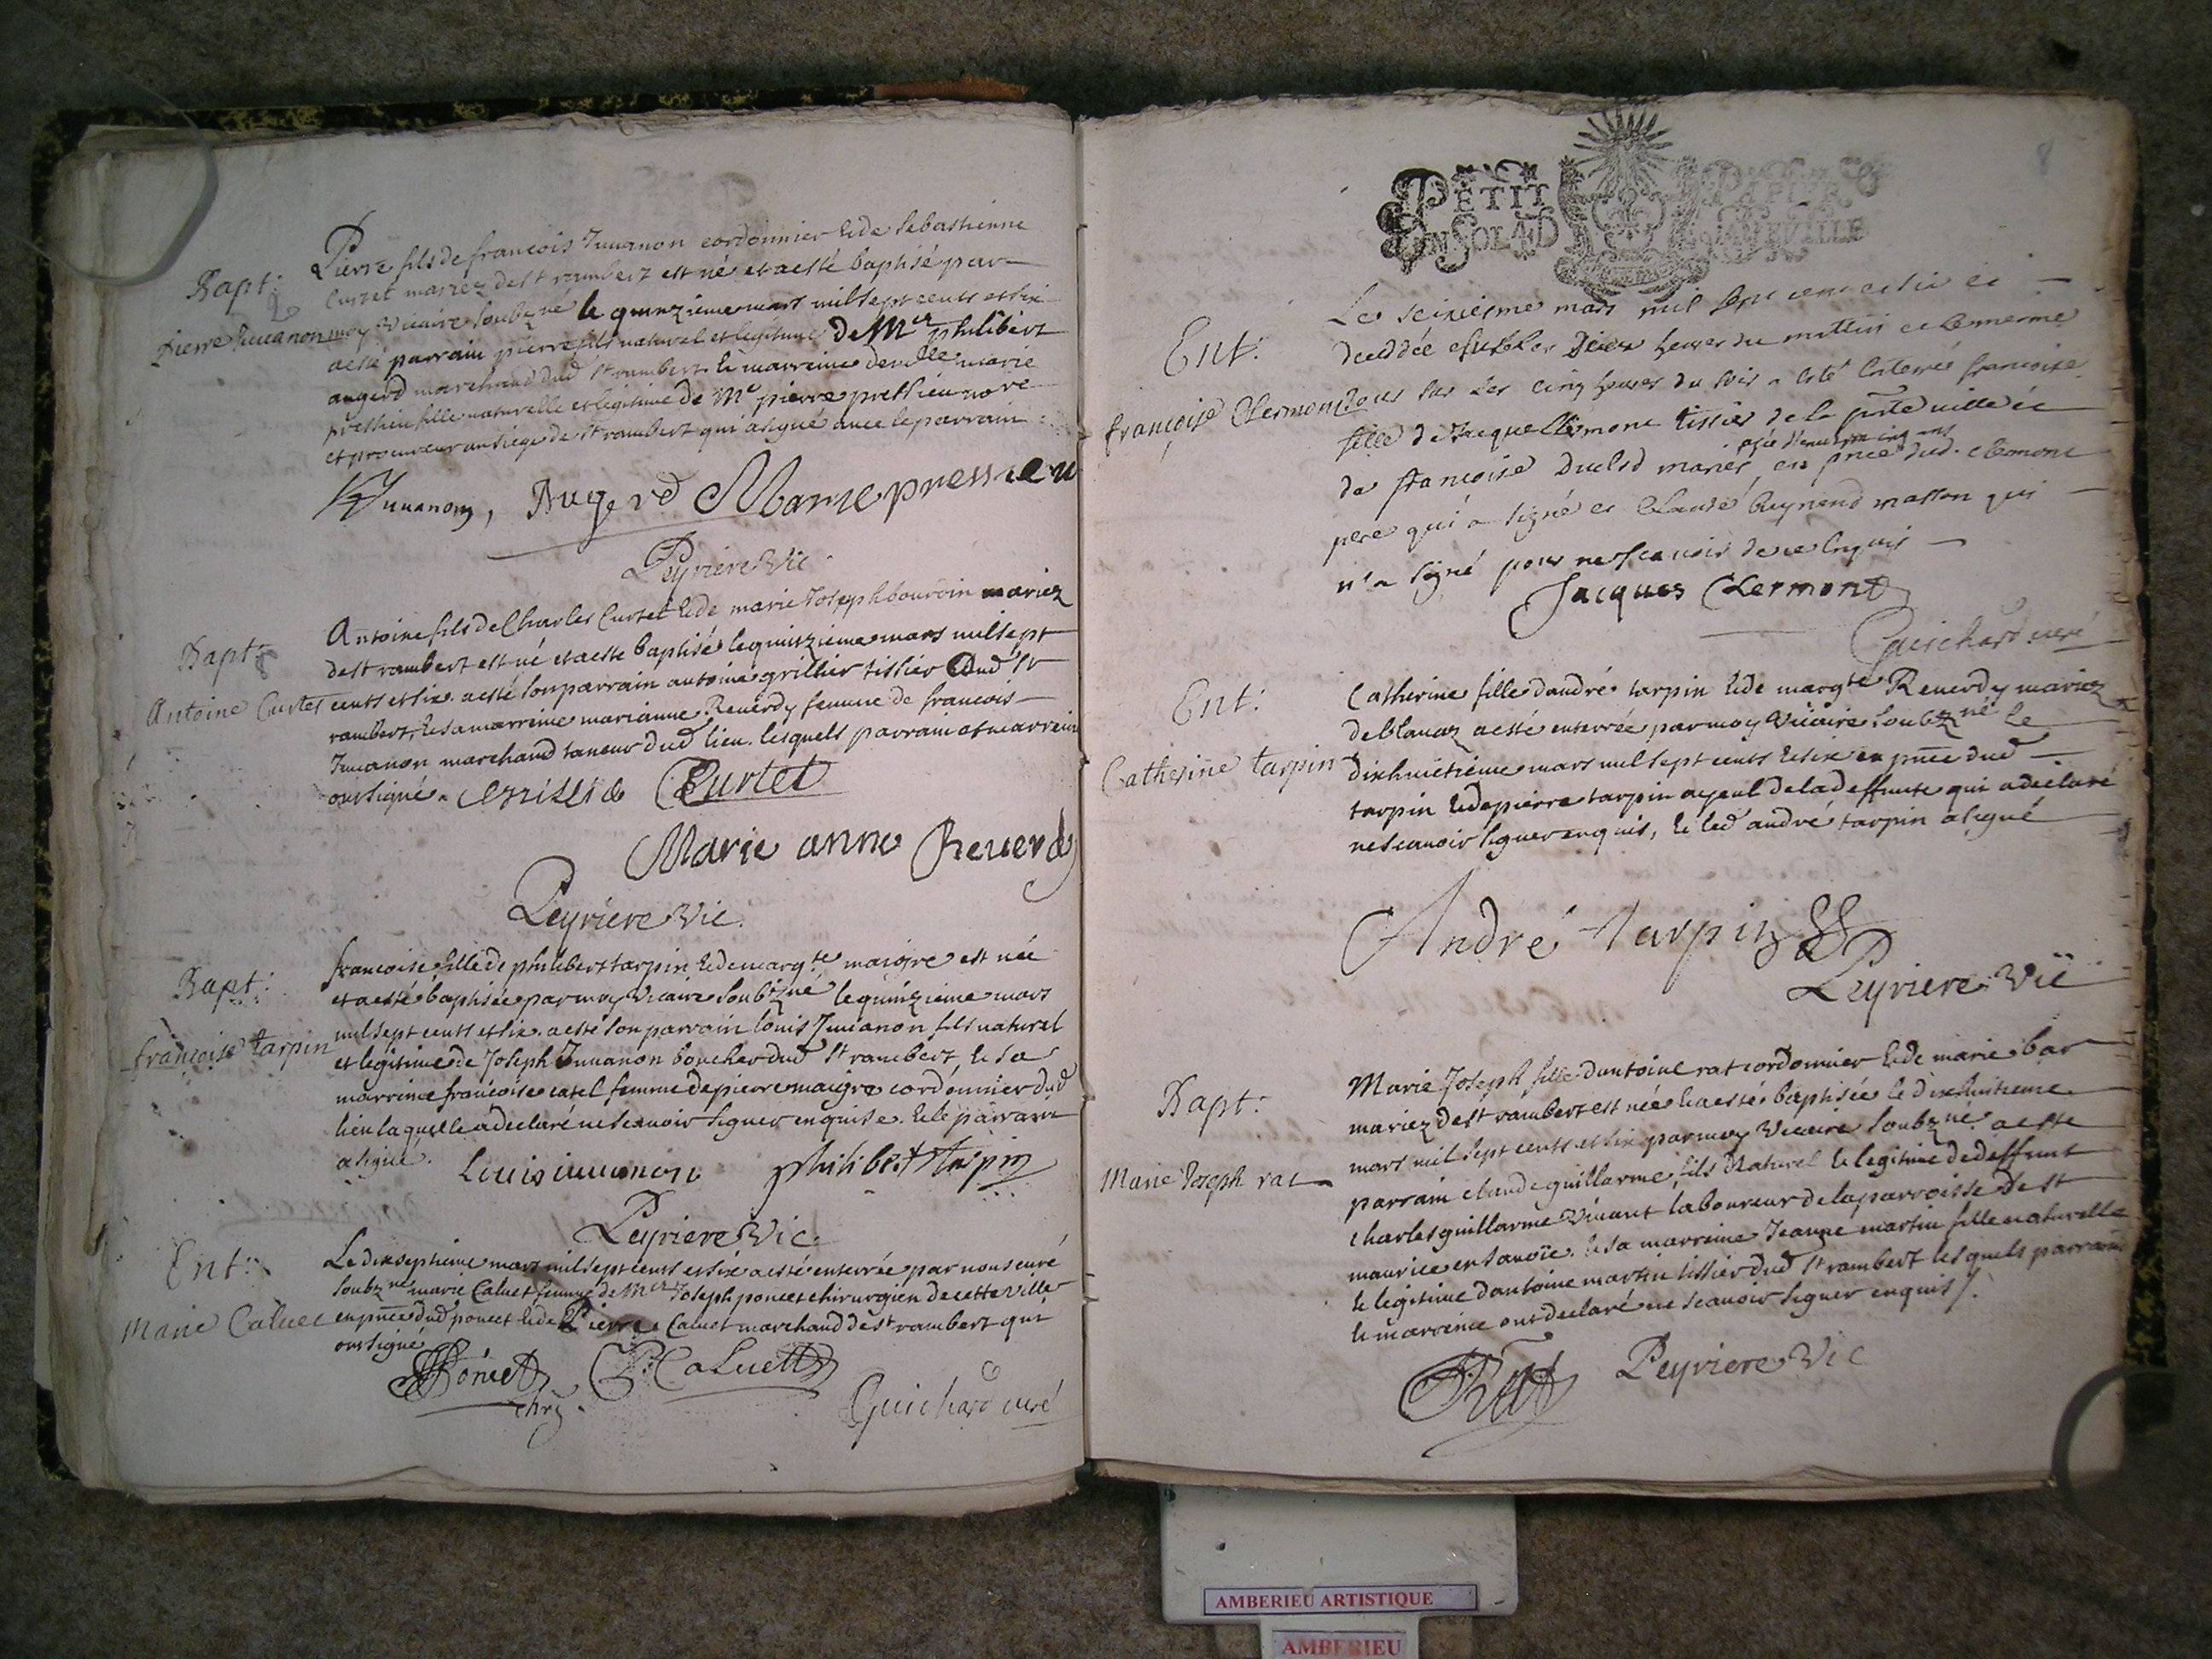 Bapt:
Pierre Juuanon
Pierre fils de francois Juuanon cordonnier & de sebastienne
Curtet mariez de st rambert est né et a esté baptisé par
moy Vicaire soubzné le quinzieme mars mil sept cents et six
a esté parrain pierre fils naturel et legitime de Mre philibert
augerd marchand dud st rambert & marreine demlle marie
pressieu fille naturelle et legitime de Me pierre pressieu nore
et procureur au siege de st rambert qui a signé avec le parrain
Juuanon, Augerd Marie pressieu
Peyriere Vic
Bapt:
Antoine Curtet
Antoine fils de Charles Curtet & de marie Joseph bouvoin mariez
de st rambert est né et a esté baptisé le quinzieme mars mil sept
cents et six. a esté son parrain antoine grillier tissier dud st
rambert, & sa marreine marianne Reuerdy femme de francois
Juuanon marchand taneur dud lieu. lesquels parrain et marreine
ont signé. Curtet
Marie anne Reuerdy
Peyriere Vic.
Bapt:
françoise tarpin
francoise fille de philibert tarpin & de margte maigre est née
et a esté baptisée par moy Vicaire soubzné le quinzieme mars
mil sept cents et six. a esté son parrain louis Juuanon fils naturel
et legitime de Joseph Juuanon boucher dud st rambert & sa
marreine francoise catel femme de pierre maigre cordonnier dud
lieu laquelle a declaré ne scauoir signer enquise. & le parrain
a signé. Louis iuuanon philibert tarpin
Peyriere Vic.
Ent:
Marie Caluet
Le dixseptieme mars mil sept cents et six a esté enterrée par nous curé
soubzné marie Caluet femme de Mre Joseph poncet chirurgien de cette ville
en pnce dud poncet & de Pierre Caluet marchand de st rambert qui
ont signé
Poncet P. Caluet
chrg. Guichard curé
8
PETIT PAPIER
UN SOL 4 D LA FEUILLE
Ent:
françoise Clermont
Le seixiesme mars mil sept cent et six est
decedée sur les Deux heures du mattin et le mesme
Jour sur les cinq heures du soir a esté enterrée françoise
fille de Jacque Clermont tissier de la pnte ville et
agée d'enuiron cinq ans
de françoise Duclod mariés en pnce dud. Clermont
pere qui a signé et Claude Reynend masson qui
n'a signé pour ne scauoir de ce enquis
Jacques Clermont
Guichard curé
Ent:
Catherine tarpin
Catherine fille dandré tarpin & de margte Reuerdy mariez
de blanaz a esté enterrée par moy Vicaire soubzné le
dixhuitieme mars mil sept cents & six en pnce dud
tarpin & de pierre tarpin ayeul de la deffunte qui a declaré
ne scauoir signer enquis, & led andré tarpin a signé
André tarpin
Peyriere Vic
Bapt:
Marie Joseph rat
Marie Joseph fille dantoine rat cordonnier & de marie bar
mariez de st rambert est née & a esté baptisée le dixhuitieme
mars mil sept cents et six par moy Vicaire soubzné a esté
parrain claude guillarme, fils Naturel & legitime de deffunt
charles guillarme Viuant laboureur de la parroisse de st
maurice en sauoïe. & sa marreine Jeanne martin fille naturelle
& legitime dantoine martin tissier dud st rambert lesquels parrain
& marreine ont declaré ne scauoir signer enquis /.
Rat Peyriere Vic
AMBERIEU ARTISTIQUE
AMBERIEU